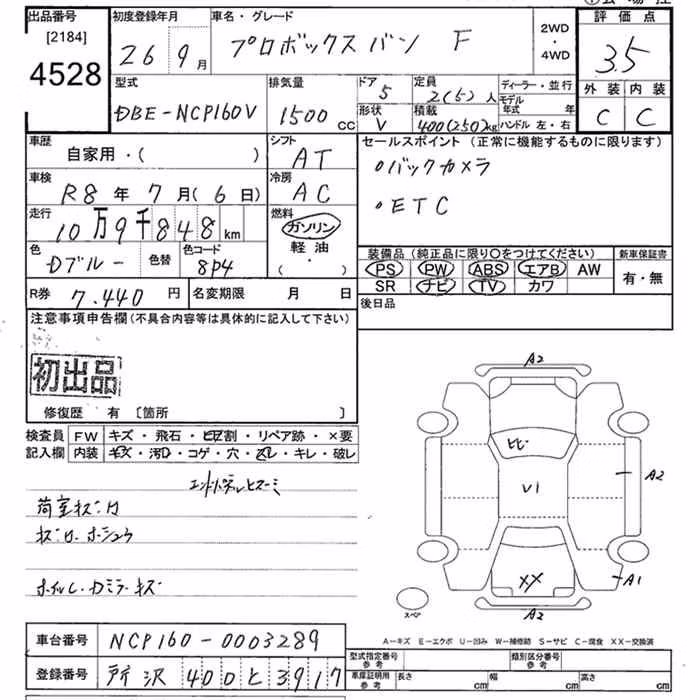 出品番号
[2184]
4528
初度登録年月
26 9月
車名・グレード
プロボックスバン F
2WD
・
4WD
評価点
3.5
外装 内装
C C
型式
DBE-NCP160V
排気量
1500 cc
ドア
5
形状
V
定員
2(5)人
積載
400(250)kg
ディーラー・並行
モデル年式 年
ハンドル 左・右
車歴
自家用・( )
シフト
AT
セールスポイント (正常に機能するものに限ります)
・バックカメラ
・ETC
車検
R8年 7月(6日)
冷房
AC
走行
10万9千848km
燃料
ガソリン
軽油
( ・ )
色
Dブルー
色替
色コード
8P4
装備品(純正品に限り○をつけてください)
PS PW ABS エアB AW
SR ナビ TV カワ
新車保証書
有・無
R券 7.440円
名変期限 月 日
後日品
注意事項申告欄(不具合内容等は具体的に記入して下さい)
初出品
修復歴 有 〔箇所 〕
検査員
記入欄
FW キズ・飛石・ヒビ割・リペア跡・×要
内装 キズ・汚レ・コゲ・穴・スレ・キレ・破レ
荷室キズ・凹
ホイルC・Dミラーキズ
A2
ヒビ
U1
A2
XX
A1
A2
スペア
A-キズ E-エクボ U-凹み W-補修跡 S-サビ C-腐食 XX-交換済
車台番号 NCP160-0003289
登録番号 所沢 400 と 3917
型式指定番号
参考
類別区分番号
参考
車庫証明用
参考
長さ cm 幅 cm 高さ cm